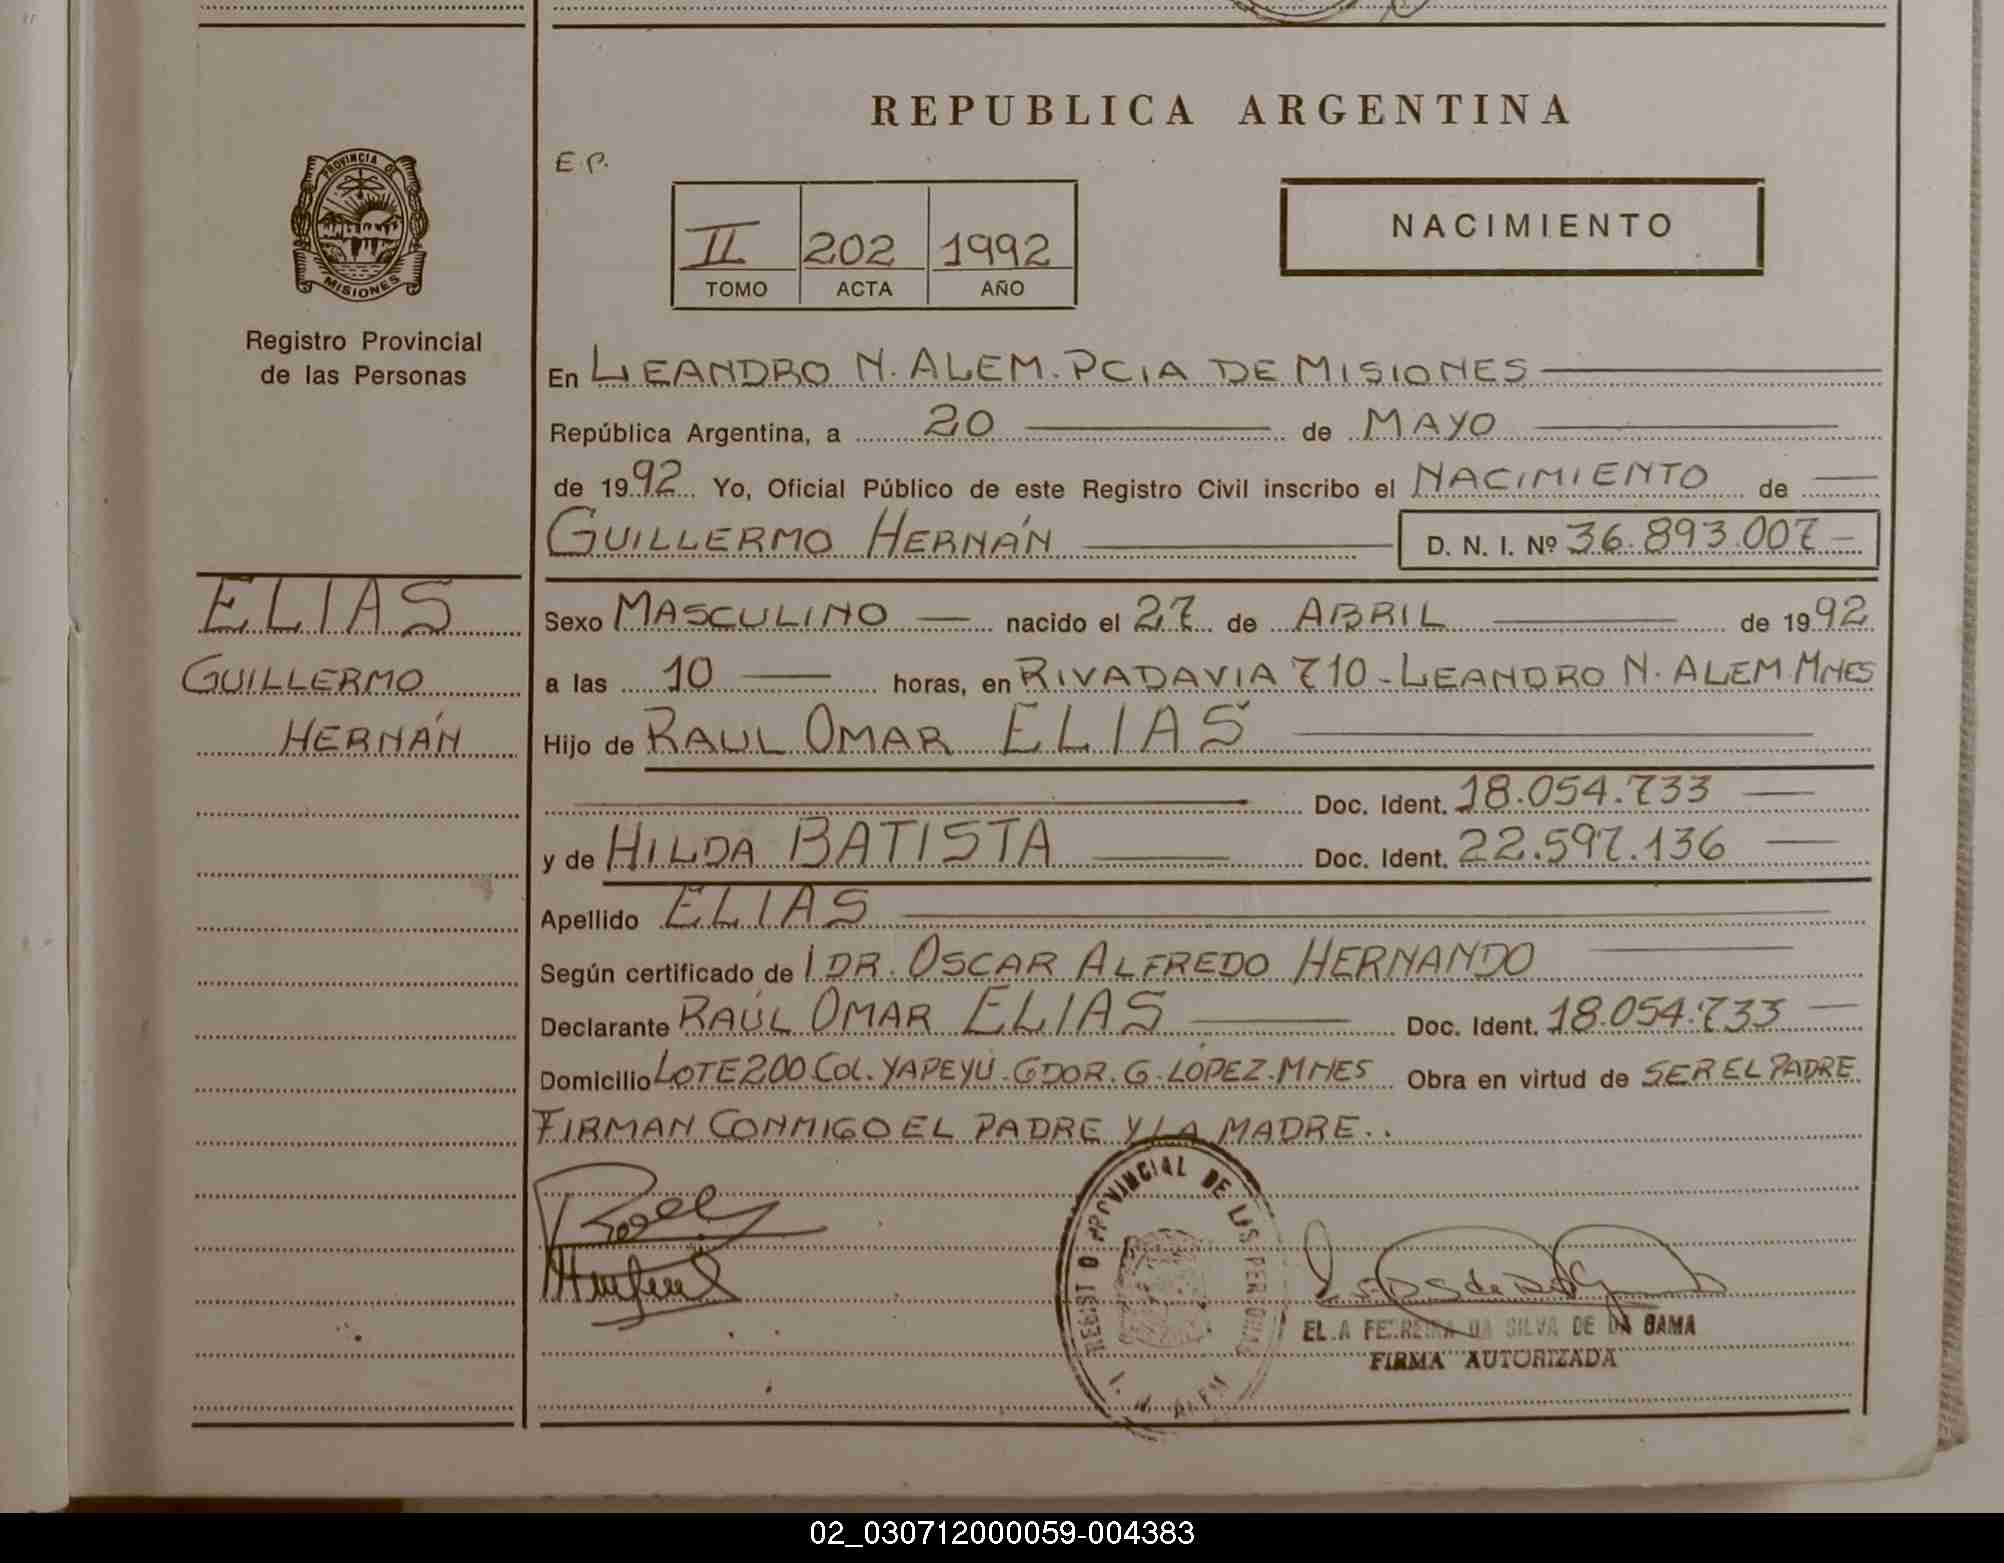 REPUBLICA ARGENTINA
E.P.
PROVINCIA DE
MISIONES
II 202 1992
TOMO ACTA AÑO
NACIMIENTO
Registro Provincial
de las Personas
En LEANDRO N. ALEM. PCIA DE MISIONES
República Argentina, a 20 de MAYO
de 1992 Yo, Oficial Público de este Registro Civil inscribo el NACIMIENTO de
GUILLERMO HERNÁN D. N. I. Nº 36.893.007
ELIAS
GUILLERMO
HERNÁN
Sexo MASCULINO nacido el 27 de ABRIL de 1992
a las 10 horas, en RIVADAVIA 710 - LEANDRO N. ALEM. MNES
Hijo de RAUL OMAR ELIAS
Doc. Ident. 18.054.733
y de HILDA BATISTA Doc. Ident. 22.597.136
Apellido ELIAS
Según certificado de l DR. OSCAR ALFREDO HERNANDO
Declarante RAÚL OMAR ELIAS Doc. Ident. 18.054.733
Domicilio LOTE 200 COL. YAPEYÚ. GDOR. G. LÓPEZ. MNES Obra en virtud de SER EL PADRE
FIRMAN CONMIGO EL PADRE Y LA MADRE..
REGIST O PROVINCIAL DE LAS PER
ALEM
EL A FERREIRA DA SILVA DE DA GAMA
FIRMA AUTORIZADA
02_030712000059-004383